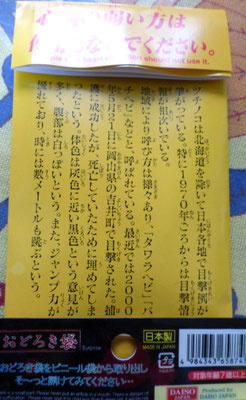 心臓の弱い方は
使わないでください。
ツチノコは北海道を除いて日本各地で目撃例が
挙がっている。特に1970年ごろからは目撃情
報が相次いている。
地域により呼び方は様々あり、「タワラヘビ」、「バ
チヘビ」などと呼ばれている。最近では2000
年5月21日に岡山県の吉井町で目撃された。捕
獲に成功したが、死亡していたために埋めてしま
ったという。体色は灰色に近い黒色という意見が
多く、腹部は白っぽいという。また、ジャンプ力が
優れており、時には数メートルも跳ぶという。
おどろき袋
Surprise
おどろき袋をビニール袋から取り出し
そ〜っと開けてみてください…
日本製
MADE IN JAPAN
4 984343 65874
対象年齢7歳以上
DAISO
JAPAN
Produced by
DAISO JAPAN